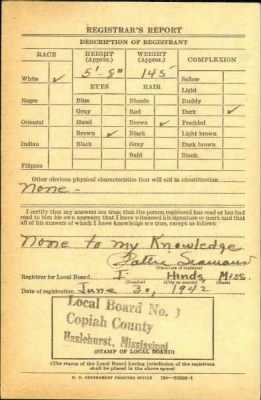 REGISTRAR'S REPORT
DESCRIPTION OF REGISTRANT
RACE HEIGHT (Approx.) WEIGHT (Approx.) COMPLEXION
5'-8" 145
White ✓ Sallow
EYES HAIR Light
Negro Blue Blonde Ruddy
Gray Red Dark ✓
Oriental Hazel Brown Freckled
Brown ✓ Black ✓ Light brown
Indian Black Gray Dark brown
Bald Black
Filipino
Other obvious physical characteristics that will aid in identification
None -
I certify that my answers are true; that the person registered has read or has had
read to him his own answers; that I have witnessed his signature or mark and that
all of his answers of which I have knowledge are true, except as follows:
None to my Knowledge
(Signature of registrar)
Registrar for Local Board 1 Hinds, Miss.
(Number) (City or county) (State)
Date of registration June 30, 1942
Local Board No. 1
Copiah County
Hazlehurst, Mississippi
(STAMP OF LOCAL BOARD)
(The stamp of the Local Board having jurisdiction of the registrant
shall be placed in the above space)
U. S. GOVERNMENT PRINTING OFFICE